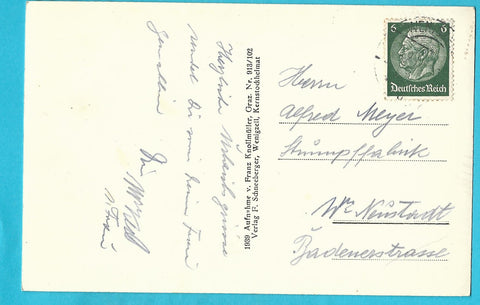 Herzliche Urlaubsgrüsse
sendet Dir von deine Frau
Dein
u. Frau
1939 Aufnahme v. Franz Knollmüller, Graz. Nr. 913/102
Verlag F. Schneeberger, Wenigzell, Kernstockheimat
6 6
Deutsches Reich
Herrn
Alfred Meyer
Strumpffabrik
Wr. Neustadt
Badenerstrasse